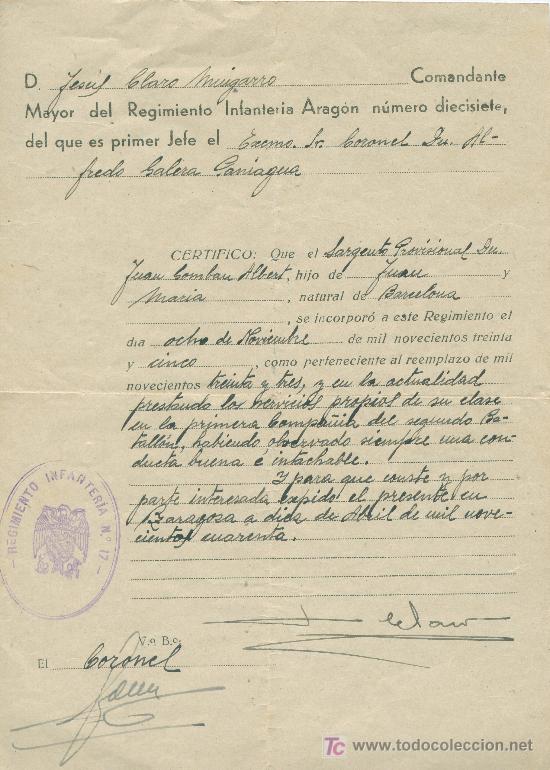 D. Jesús Claro Mingarro Comandante
Mayor del Regimiento Infantería Aragón número diecisiete,
del que es primer Jefe el Excmo. Sr. Coronel Dn. Al-
fredo Galera Paniagua
CERTIFICO: Que el Sargento Provisional Dn.
Juan Comban Albert, hijo de Juan y
Maria, natural de Barcelona
, se incorporó a este Regimiento el
día ocho de Noviembre de mil novecientos treinta
y cinco, como perteneciente al reemplazo de mil
novecientos treinta y tres, y en la actualidad
prestando los servicios propios de su clase
en la primera Compañía del segundo Ba-
tallón, habiendo observado siempre una con-
ducta buena é intachable.
Y para que conste y por
parte interesada expido el presente en
Zaragosa a diez de Abril de mil nove-
cientos cuarenta.
REGIMIENTO INFANTERIA N.º 17
J Claro
V.º B.º
El Coronel
Galera
TC www.todocoleccion.net